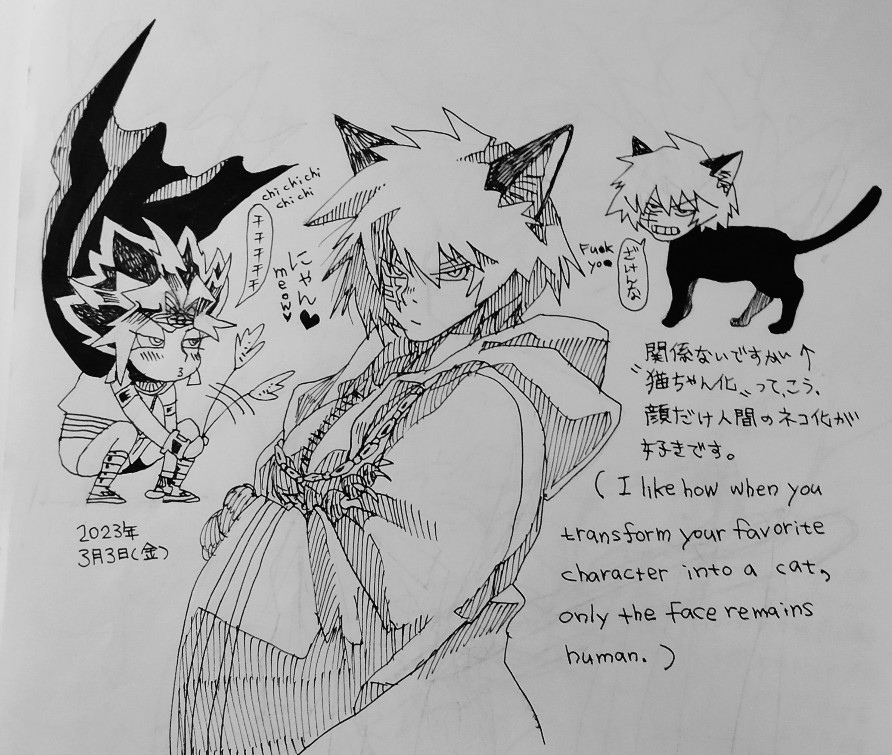 chi chi chi
chi chi
チチチチチ
にゃん♥
meow♥
Fu●k
yo●
ざけんな
2023年
3月3日(金)
関係ないですが↑
"猫ちゃん化"って、こう、
顔だけ人間のネコ化が
好きです。
(I like how when you
transform your favorite
character into a cat,
only the face remains
human.)